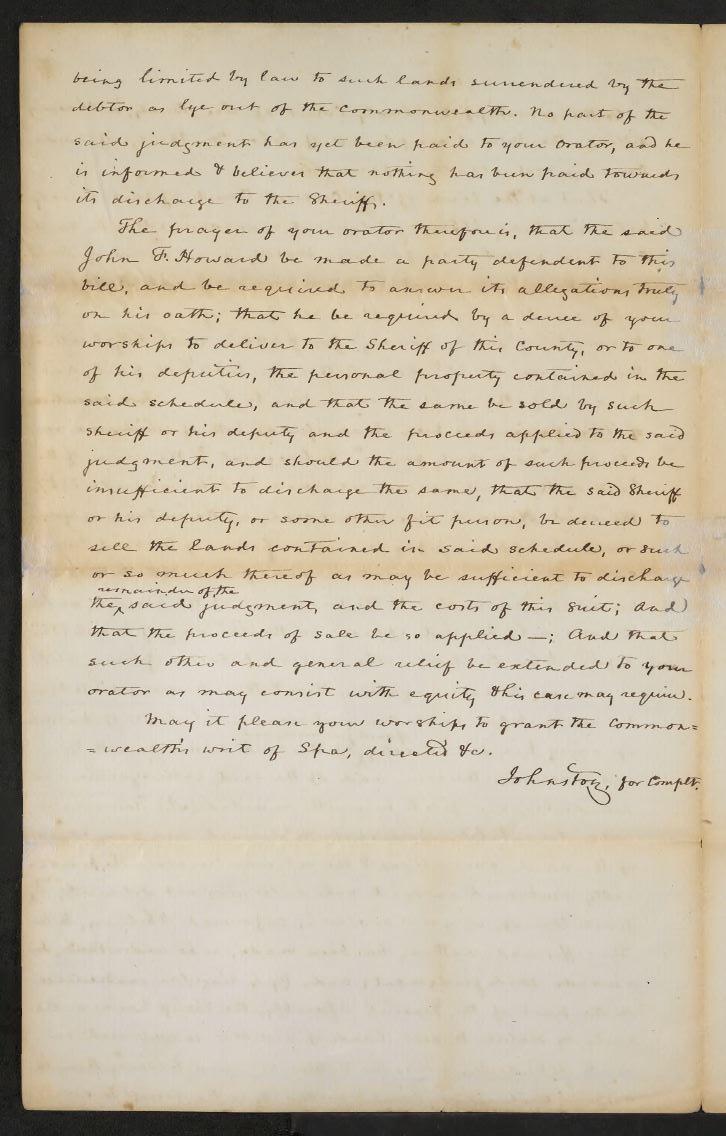 being limited by law to such lands surrendered by the
debtor as lye out of the commonwealth. No part of the
said judgment has yet been paid to your orator, and he
is informed & believes that nothing has been paid towards
its discharge to the Sheriff.
The prayer of your orator therefore is, that the said
John F. Howard be made a party defendent to this
bill, and be required to answer its allegations truly
on his oath; that he be required by a decree of your
worships to deliver to the Sheriff of this County, or to one
of his deputies, the personal property contained in the
said schedule, and that the same be sold by such
sheriff or his deputy and the proceeds applied to the said
judgment, and should the amount of such proceeds be
insufficient to discharge the same, that the said Sheriff
or his deputy, or some other fit person, be decreed to
sell the lands contained in said schedule, or such
or so much thereof as may be sufficient to discharge
remainder of the
the ‸ said judgment, and the costs of this suit; And
that the proceeds of sale be so applied —; And that
such other and general relief be extended to your
orator as may consist with equity & his case may require.
May it please your worships to grant the Common=
=wealth's writ of Spa, directed &c.
Johnston, for Complt.